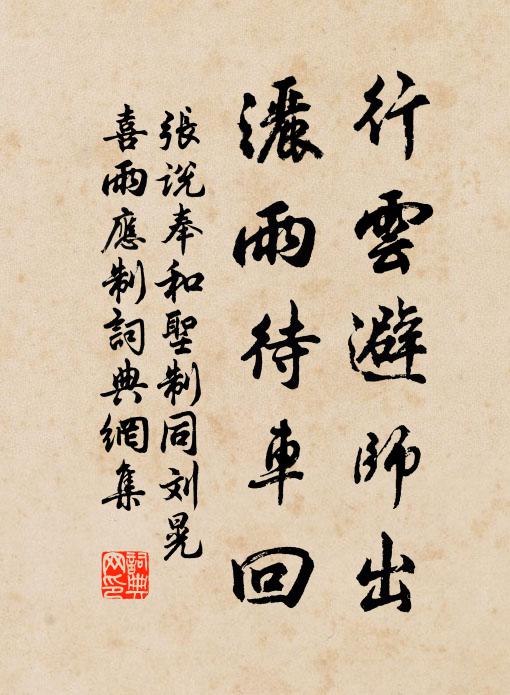 行雲避師出
灑雨待車回
張说奉和聖制同刘晃
喜雨應制詞典網集
詞典
网印